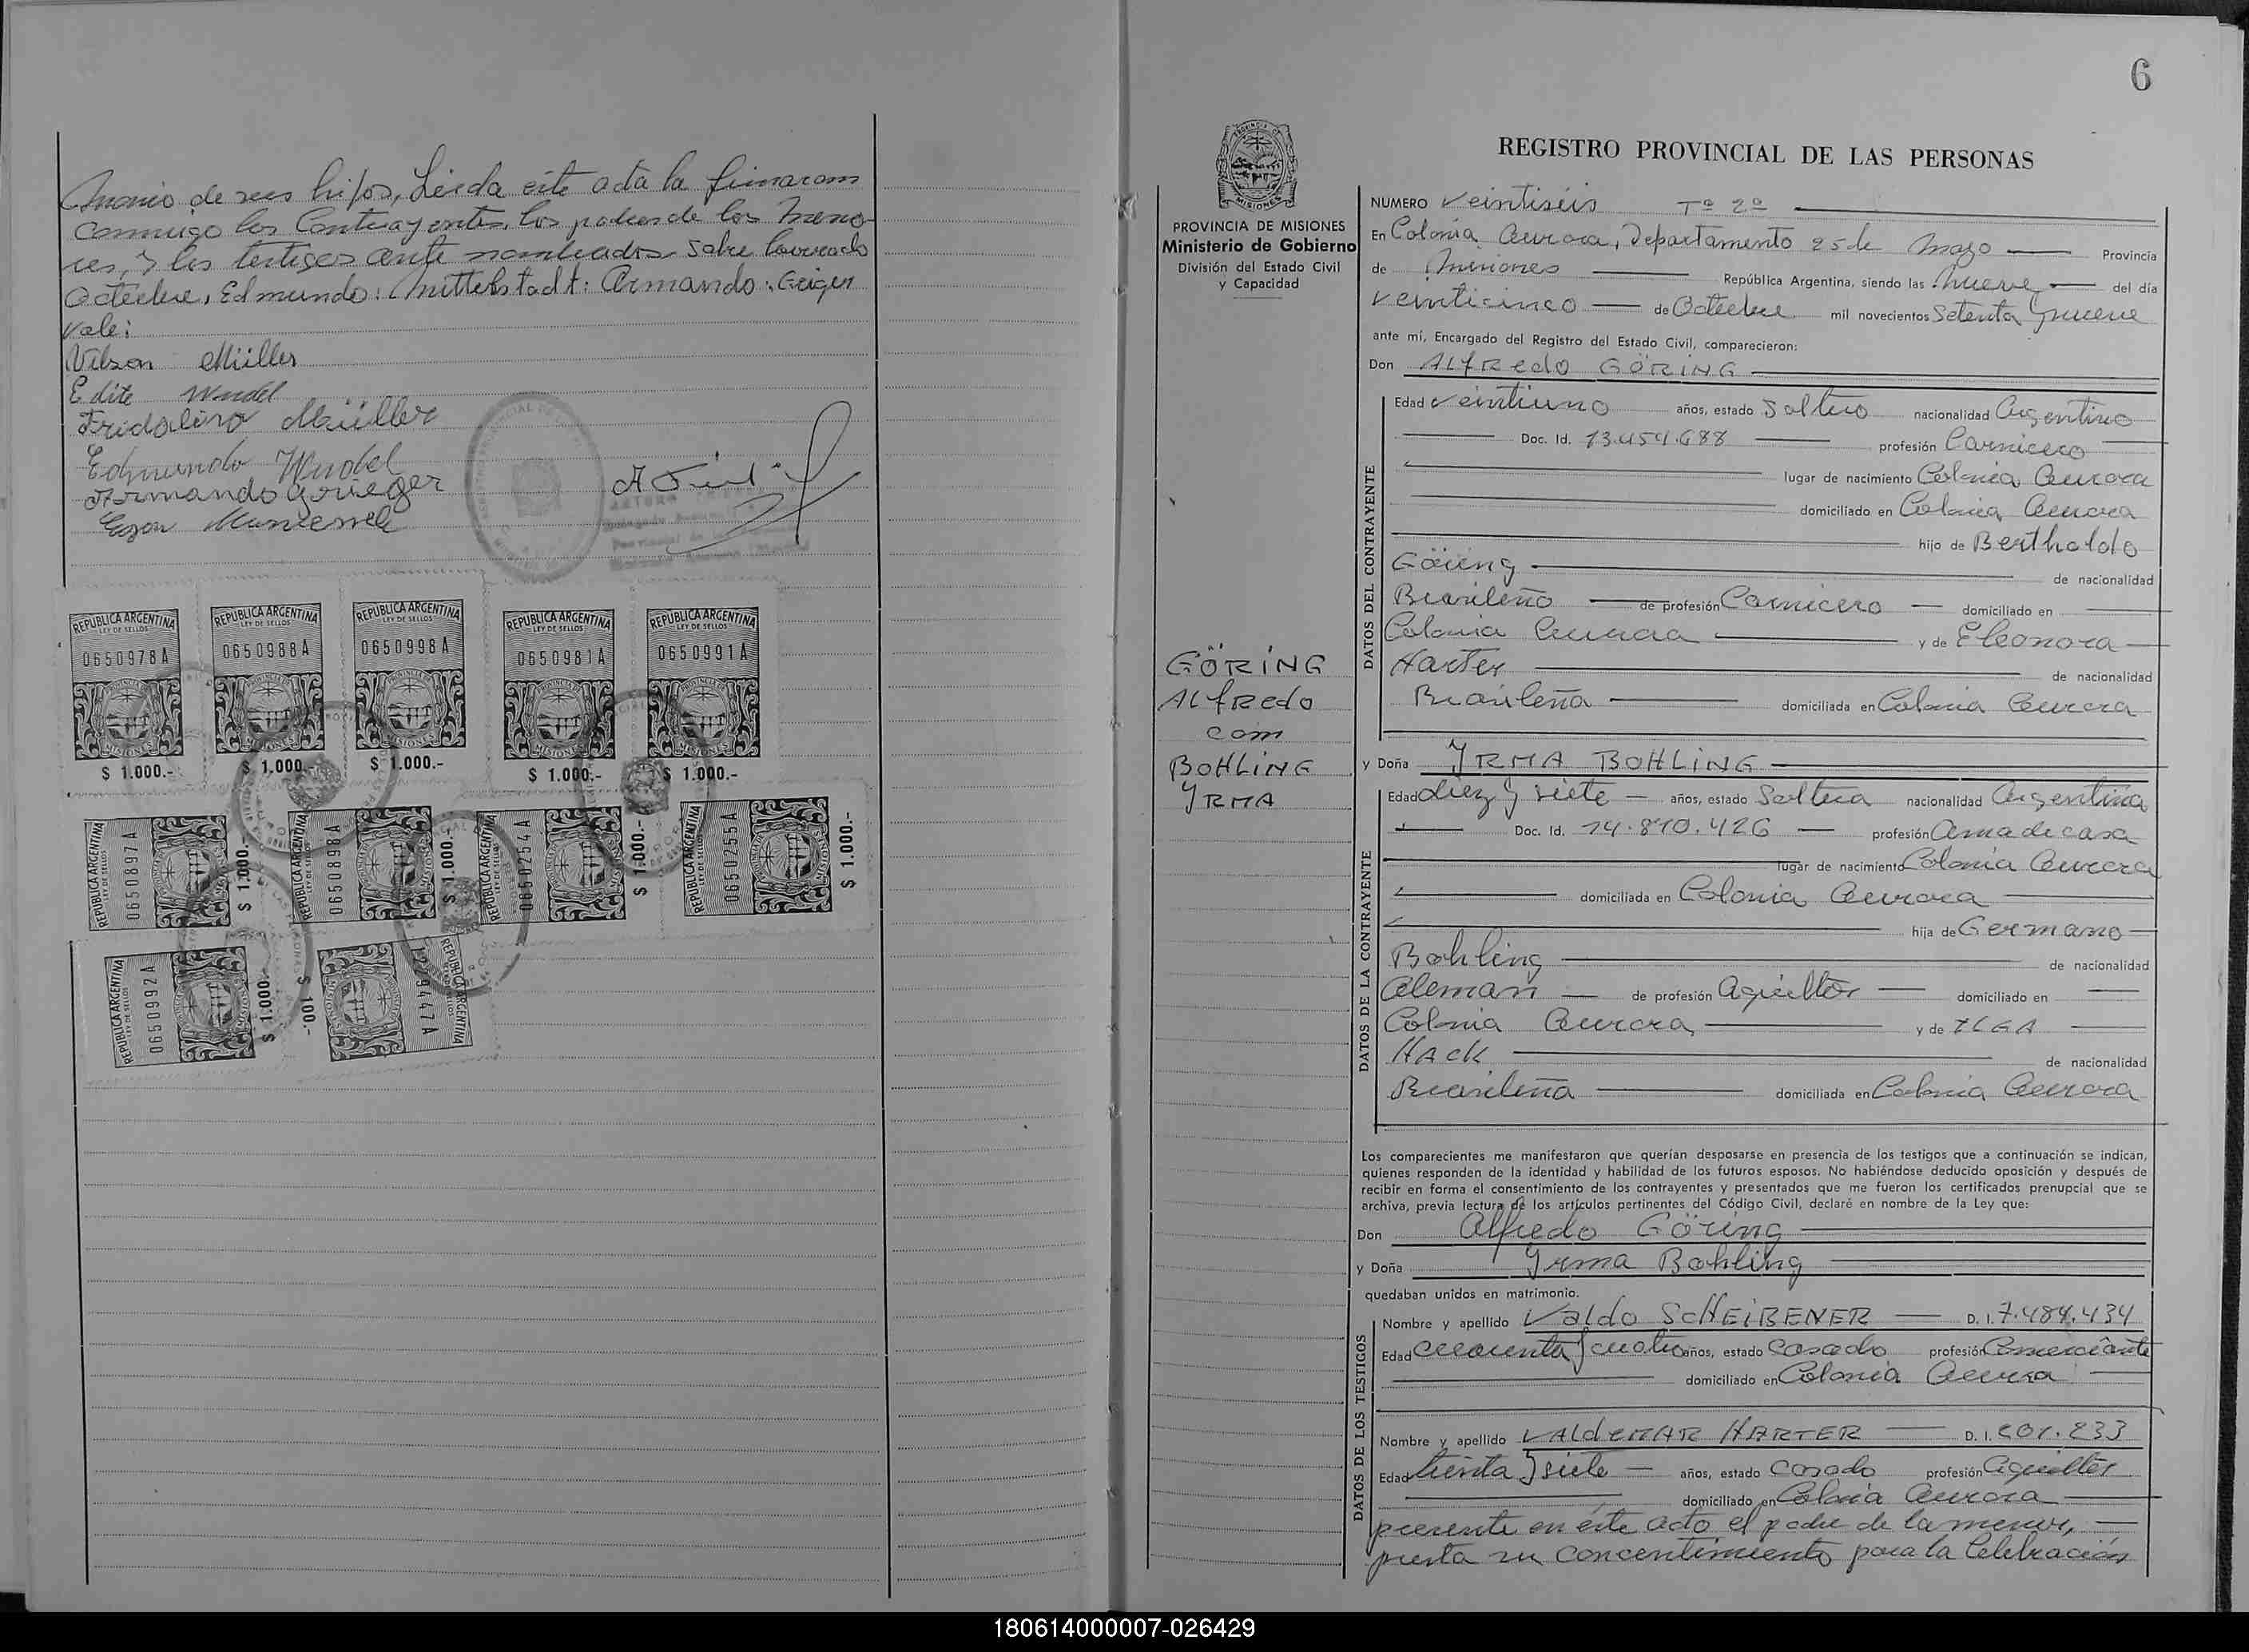 monio de sus hijos, Leida este acta la firmaron
conmigo los Contrayentes, los padres de los meno-
res, y los testigos ante nombrados sobre borrado
Octubre, Edmundo: Mittelstadt: Armando: Geiger
Vale:
Vilson Müller
Edite Wudel
Fridolino Müller
Edmundo Wudel
Armando Grieger
Egon
REPUBLICA ARGENTINA
LEY DE SELLOS
0650978A
MISIONES
$ 1.000.-
REPUBLICA ARGENTINA
LEY DE SELLOS
0650988A
MISIONES
$ 1.000.-
REPUBLICA ARGENTINA
LEY DE SELLOS
0650998A
MISIONES
$ 1.000.-
REPUBLICA ARGENTINA
LEY DE SELLOS
0650981A
MISIONES
$ 1.000.-
REPUBLICA ARGENTINA
LEY DE SELLOS
0650991A
MISIONES
$ 1.000.-
REPUBLICA ARGENTINA
LEY DE SELLOS
0650897A
$ 1.000.-
REPUBLICA ARGENTINA
LEY DE SELLOS
0650898A
$ 1.000.-
REPUBLICA ARGENTINA
LEY DE SELLOS
0650254A
$ 1.000.-
REPUBLICA ARGENTINA
LEY DE SELLOS
0650255A
$ 1.000.-
REPUBLICA ARGENTINA
LEY DE SELLOS
0650992A
$ 1.000.-
REPUBLICA ARGENTINA
$ 100.-
6
PROVINCIA DE MISIONES
Ministerio de Gobierno
División del Estado Civil
y Capacidad
GÖRING
ALfREdo
com
BOHLING
YRMA
REGISTRO PROVINCIAL DE LAS PERSONAS
NUMERO Veintiséis Tº 2º
En Colonia Aurora, Departamento 25 de Mayo Provincia
de Misiones República Argentina, siendo las nueve del día
veinticinco de Octubre mil novecientos setenta y nueve
ante mí, Encargado del Registro del Estado Civil, comparecieron:
Don ALfREdo GÖRING
DATOS DEL CONTRAYENTE
Edad veintiuno años, estado soltero nacionalidad Argentino
Doc. Id. 13.459.688 profesión Carnicero
lugar de nacimiento Colonia Aurora
domiciliado en Colonia Aurora
hijo de Bertholdo
Göring de nacionalidad
Brasileño de profesión Carnicero domiciliado en
Colonia Aurora y de Eleonora
Harter de nacionalidad
Brasileña domiciliada en Colonia Aurora
y Doña YRMA BOHLING
DATOS DE LA CONTRAYENTE
Edad diez y siete años, estado Soltera nacionalidad Argentina
Doc. Id. 14.810.426 profesión Ama de casa
lugar de nacimiento Colonia Aurora
domiciliada en Colonia Aurora
hija de Germano
Bohling de nacionalidad
Aleman de profesión Agricultor domiciliado en
Colonia Aurora, y de ILGA
HAck de nacionalidad
Brasileña domiciliada en Colonia Aurora
Los comparecientes me manifestaron que querían desposarse en presencia de los testigos que a continuación se indican,
quienes responden de la identidad y habilidad de los futuros esposos. No habiéndose deducido oposición y después de
recibir en forma el consentimiento de los contrayentes y presentados que me fueron los certificados prenupcial que se
archiva, previa lectura de los artículos pertinentes del Código Civil, declaré en nombre de la Ley que:
Don Alfredo Göring
y Doña Yrma Bohling
quedaban unidos en matrimonio.
DATOS DE LOS TESTIGOS
Nombre y apellido Valdo ScHEiBENER D. I. 7.484.434
Edad cuarenta y cuatro años, estado Casado profesión Comerciante
domiciliado en Colonia Aurora
Nombre y apellido VALdEMAR HARTER D. I. 201.233
Edad treinta y siete años, estado Casado profesión Agricultor
domiciliado en Colonia Aurora
presente en éste acto el padre de la menor,
presta su concentimiento para la Celebración
180614000007-026429